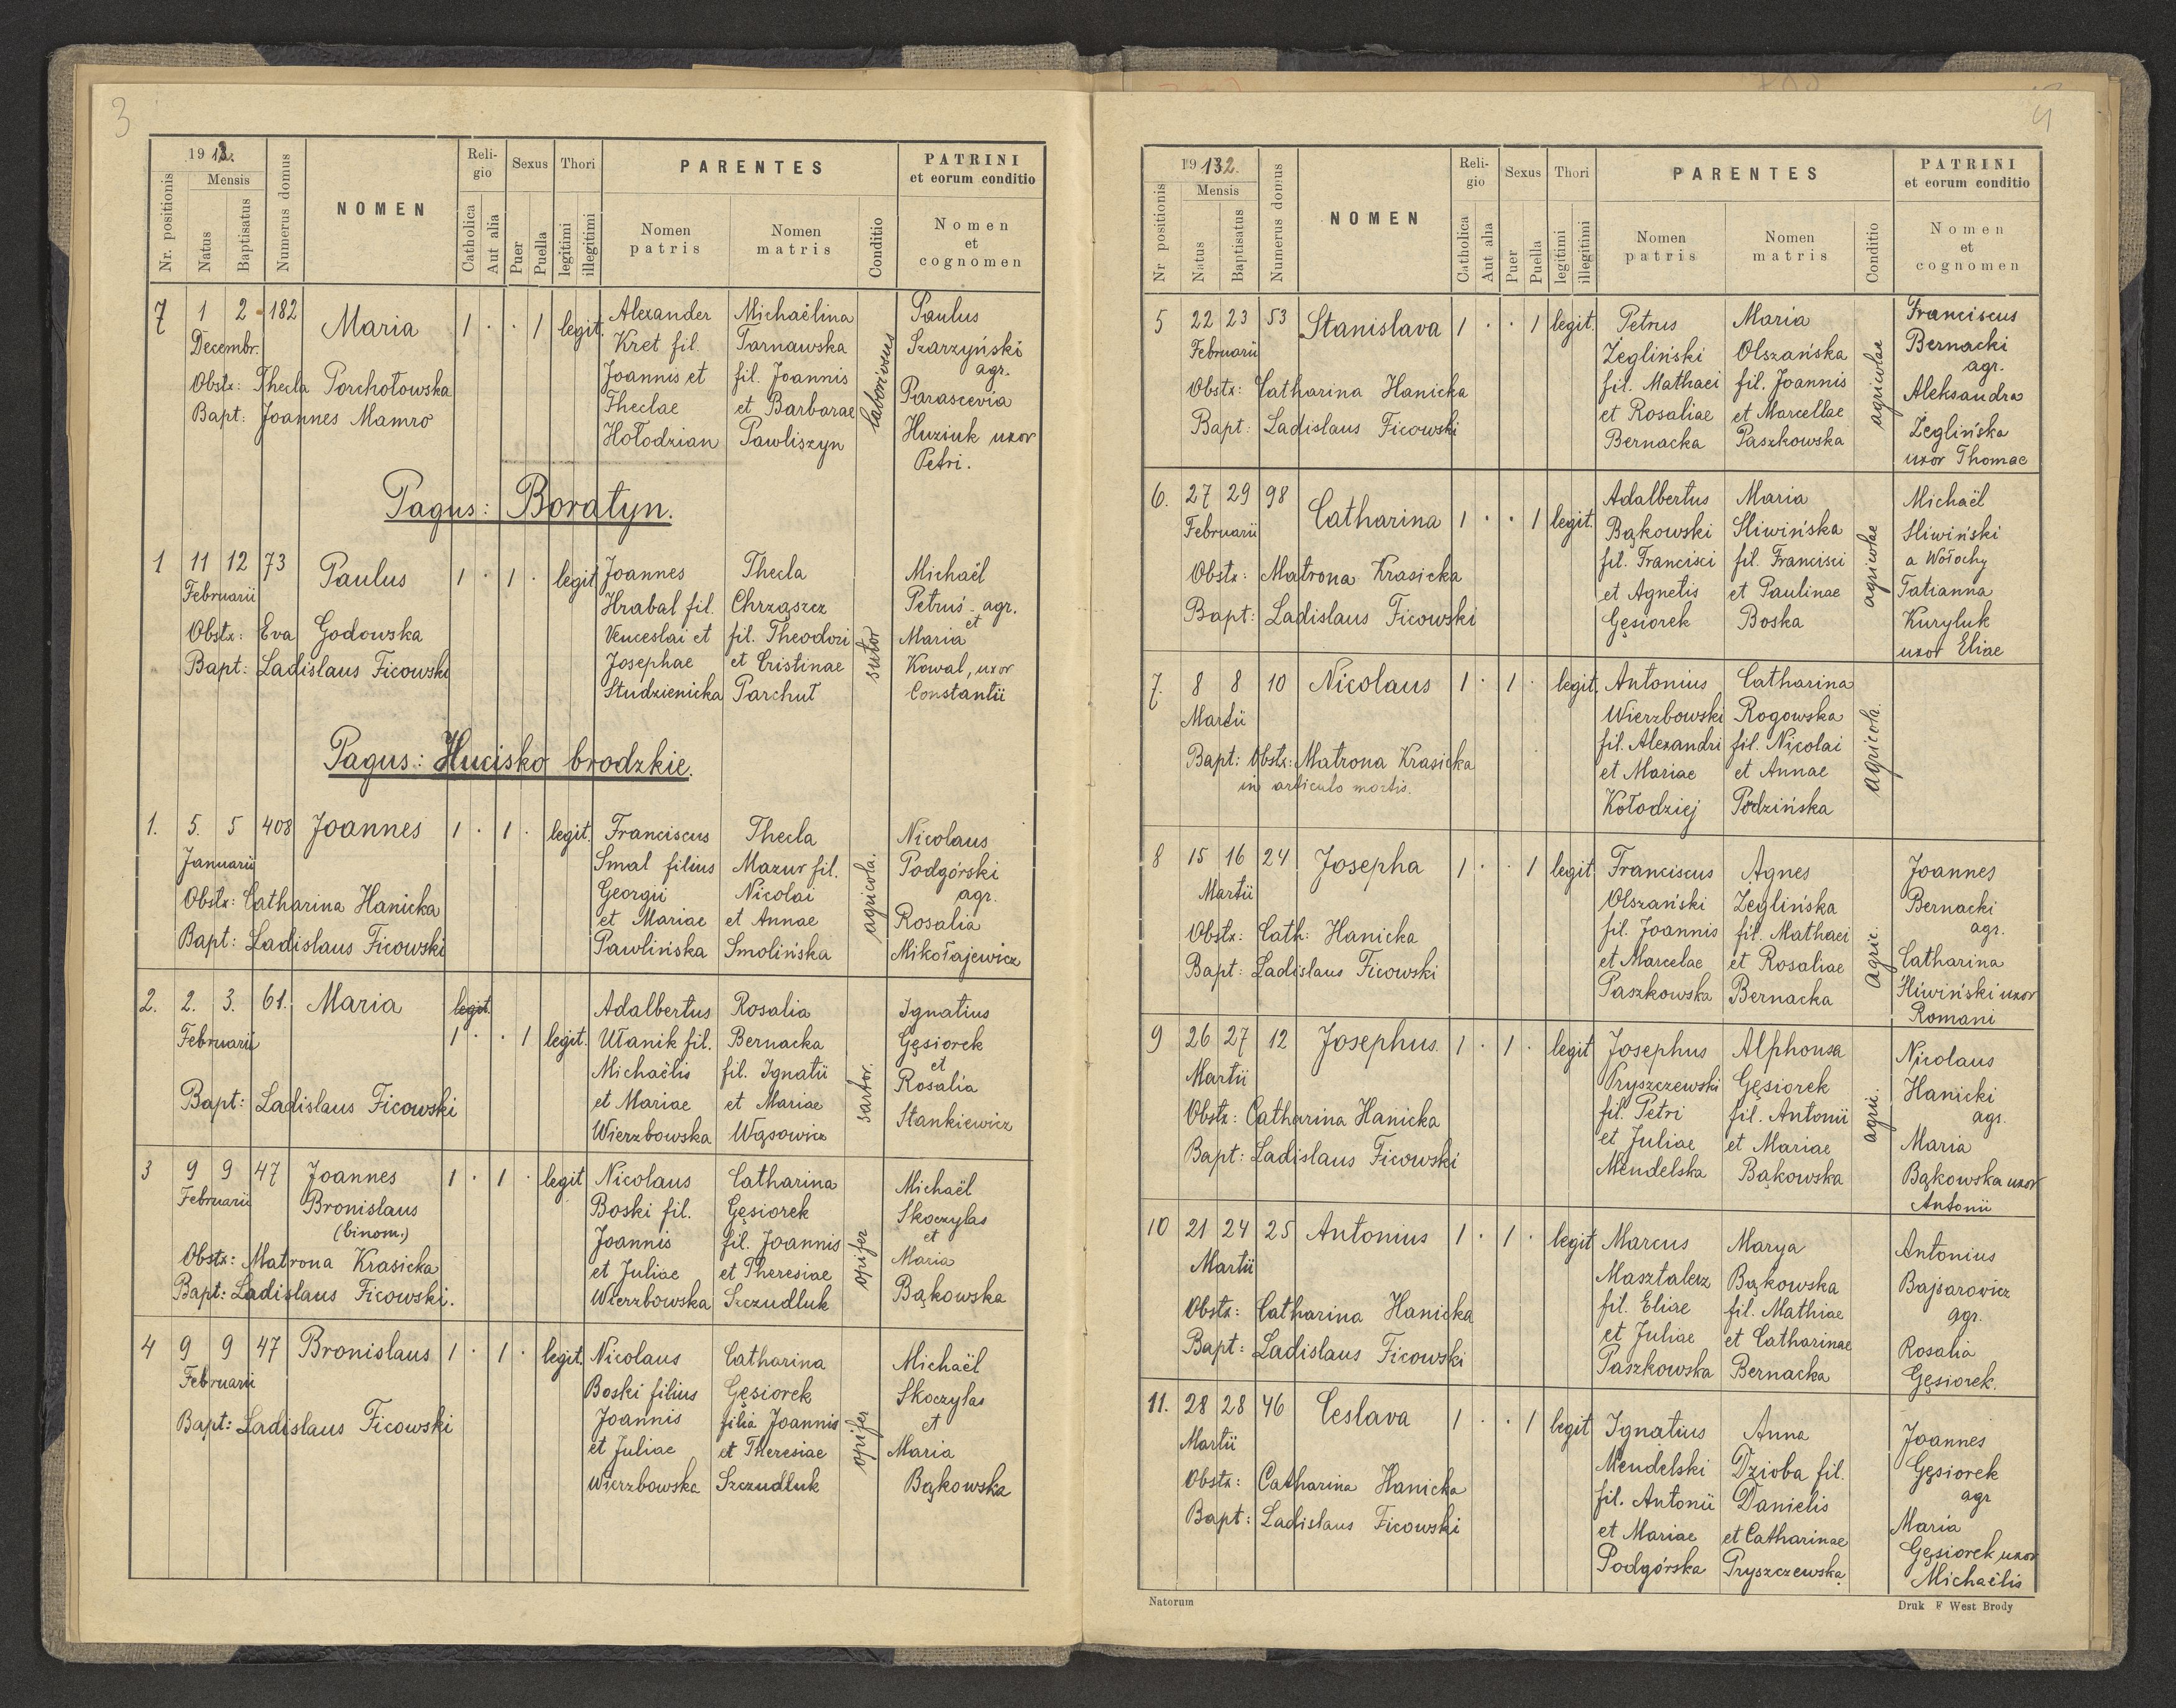 3
19 13.
Mensis
Nr. positionis
Natus
Baptisatus
Numerus domus
NOMEN
Reli-
gio
Catholica
Aut alia
Sexus
Puer
Puella
Thori
legitimi
illegitimi
PARENTES
Nomen
patris
Nomen
matris
Conditio
PATRINI
et eorum conditio
Nomen
et
cognomen
7 1 2 182 Maria 1 . . 1 legit. Alexander Michaëlina Paulus
Decembr. Kret fil. Tarnawska Szarzyński
agr.
Obstx: Thecla Porchołowska Joannis et fil. Joannis laboriosus Parascevia
Bapt: Joannes Mamro Theclae et Barbarae Huziuk uxor
Hołodzian Pawliszyn Petri.
Pagus: Boratyn.
1 11 12 73 Paulus 1 . 1 . legit Joannes Thecla Michaël
Februarii Hrabal fil. Chrząszcz Petruś - agr.
et
Obstx: Eva Godowska Venceslai et fil. Theodori sutor Maria
Bapt: Ladislaus Ficowski Josephae et Cristinae Kowal, uxor
Studzienicka Parchuł Constantii
Pagus: Hucisko brodzkie.
1. 5. 5 408 Joannes 1 . 1 . legit. Franciscus Thecla Nicolaus
Januarii Smal filius Mazur fil. Podgórski
Obstx: Catharina Hanicka Georgii Nicolai agricola. agr.
et Mariae et Annae Rosalia
Bapt: Ladislaus Ficowski Pawlińska Smolińska Mikołajewicz
2. 2. 3. 61. Maria legit. Adalbertus Rosalia Ignatius
Februarii 1 . . 1 legit. Ułanik fil. Bernacka Gęsiorek
et
Michaëlis fil. Ignatii sartor. Rosalia
Bapt: Ladislaus Ficowski et Mariae et Mariae Stankiewicz
Wierzbowska Wąsowicz
3 9 9 47 Joannes 1 . 1 . legit Nicolaus Catharina Michaël
Februarii Bronislaus Boski fil. Gęsiorek Skoczylas
(binom.) Joannis fil. Joannis opifer et
Obstx: Matrona Krasicka et Juliae et Theresiae Maria
Bapt: Ladislaus Ficowski. Wierzbowska Szczudluk Bąkowska
4 9 9 47 Bronislaus 1 . 1 . legit. Nicolaus Catharina Michaël
Februarii Boski filius Gęsiorek Skoczylas
Bapt: Ladislaus Ficowski Joannis filia Joannis opifer et
et Juliae et Theresiae Maria
Wierzbowska Szczudluk Bąkowska
4
19 132.
Mensis
Nr positionis
Natus
Baptisatus
Numerus domus
NOMEN
Reli-
gio
Catholica
Aut alia
Sexus
Puer
Puella
Thori
legitimi
illegitimi
PARENTES
Nomen
patris
Nomen
matris
Conditio
PATRINI
et eorum conditio
Nomen
et
cognomen
5 22 23 53 Stanislava 1 . . 1 legit. Petrus Maria Franciscus
Februarii Żegliński Olszańska Bernacki
agr.
Obstx: Catharina Hanicka fil. Mathaei fil. Joannis agricolae Aleksandra
et Rosaliae et Marcellae Żeglińska
Bapt: Ladislaus Ficowski Bernacka Paszkowska uxor Thomae
6. 27 29 98 Catharina 1 . . 1 legit. Adalbertus Maria Michaël
Februarii Bąkowski Śliwińska Śliwiński
fil. Francisci fil. Francisci agricolae a Wołochy
Obstx: Matrona Krasicka et Agnetis et Paulinae Tatianna
Bapt: Ladislaus Ficowski Gęsiorek Boska Kuryluk
uxor Eliae
7. 8 8 10 Nicolaus 1 . 1 . legit. Antonius Catharina
Martii Wierzbowski Rogowska
fil. Alexandri fil. Nicolai agricola.
Bapt: Obstx: Matrona Krasicka et Mariae et Annae
in articulo mortis. Kołodziej Podzińska
8 15 16 24 Josepha 1 . . 1 legit Franciscus Agnes Joannes
Martii Olszański Żeglińska Bernacki
agr.
Obstx: Cath: Hanicka fil. Joannis fil. Mathaei agric. Catharina
Bapt: Ladislaus Ficowski et Marcelae et Rosaliae Śliwiński uxor
Paszkowska Bernacka Romani
9 26 27 12 Josephus. 1 . 1 . legit Josephus Alphonsa Nicolaus
Martii Pryszczewski Gęsiorek Hanicki
Obstx: Catharina Hanicka fil. Petri fil. Antonii agric. agr.
et Juliae et Mariae Maria
Bapt: Ladislaus Ficowski Mendelska Bąkowska Bąkowska uxor
Antonii
10 21 24 25 Antonius 1 . 1 . legit Marcus Marya Antonius
Martii Masztalerz Bąkowska Bajsarowicz
Obstx: Catharina Hanicka fil. Eliae fil. Mathiae agr.
et Juliae et Catharinae Rosalia
Bapt: Ladislaus Ficowski Paszkowska Bernacka Gęsiorek.
11. 28 28 46 Ceslava 1 . . 1 legit Ignatius Anna Joannes
Martii Mendelski Dzioba fil. Gęsiorek
agr
Obstx: Catharina Hanicka fil. Antonii Danielis Maria
Bapt: Ladislaus Ficowski et Mariae et Catharinae Gęsiorek uxor
Podgórska Pryszczewska Michaëlis
Natorum
Druk F West Brody